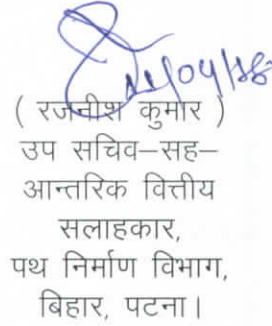 11/04/18
( रजनीश कुमार )
उप सचिव–सह–
आन्तरिक वित्तीय
सलाहकार,
पथ निर्माण विभाग,
बिहार, पटना।